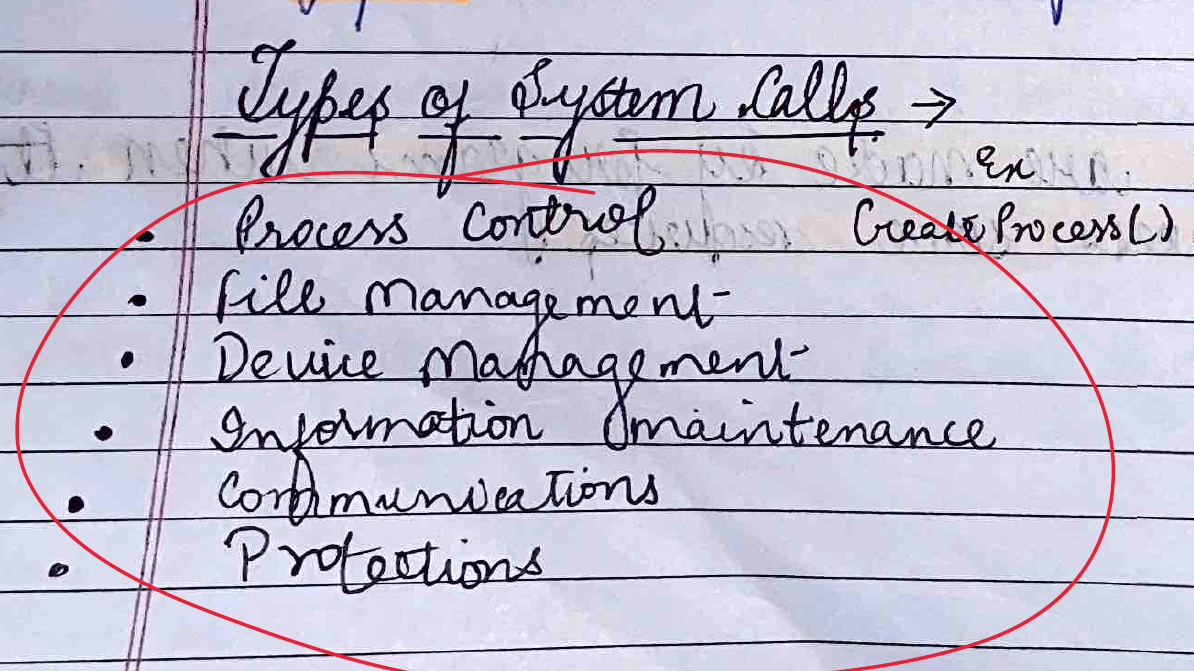 Types of System Calls →
Ex
• Process Control CreateProcess()
• File Management
• Device Management
• Information maintenance
• Communications
• Protections